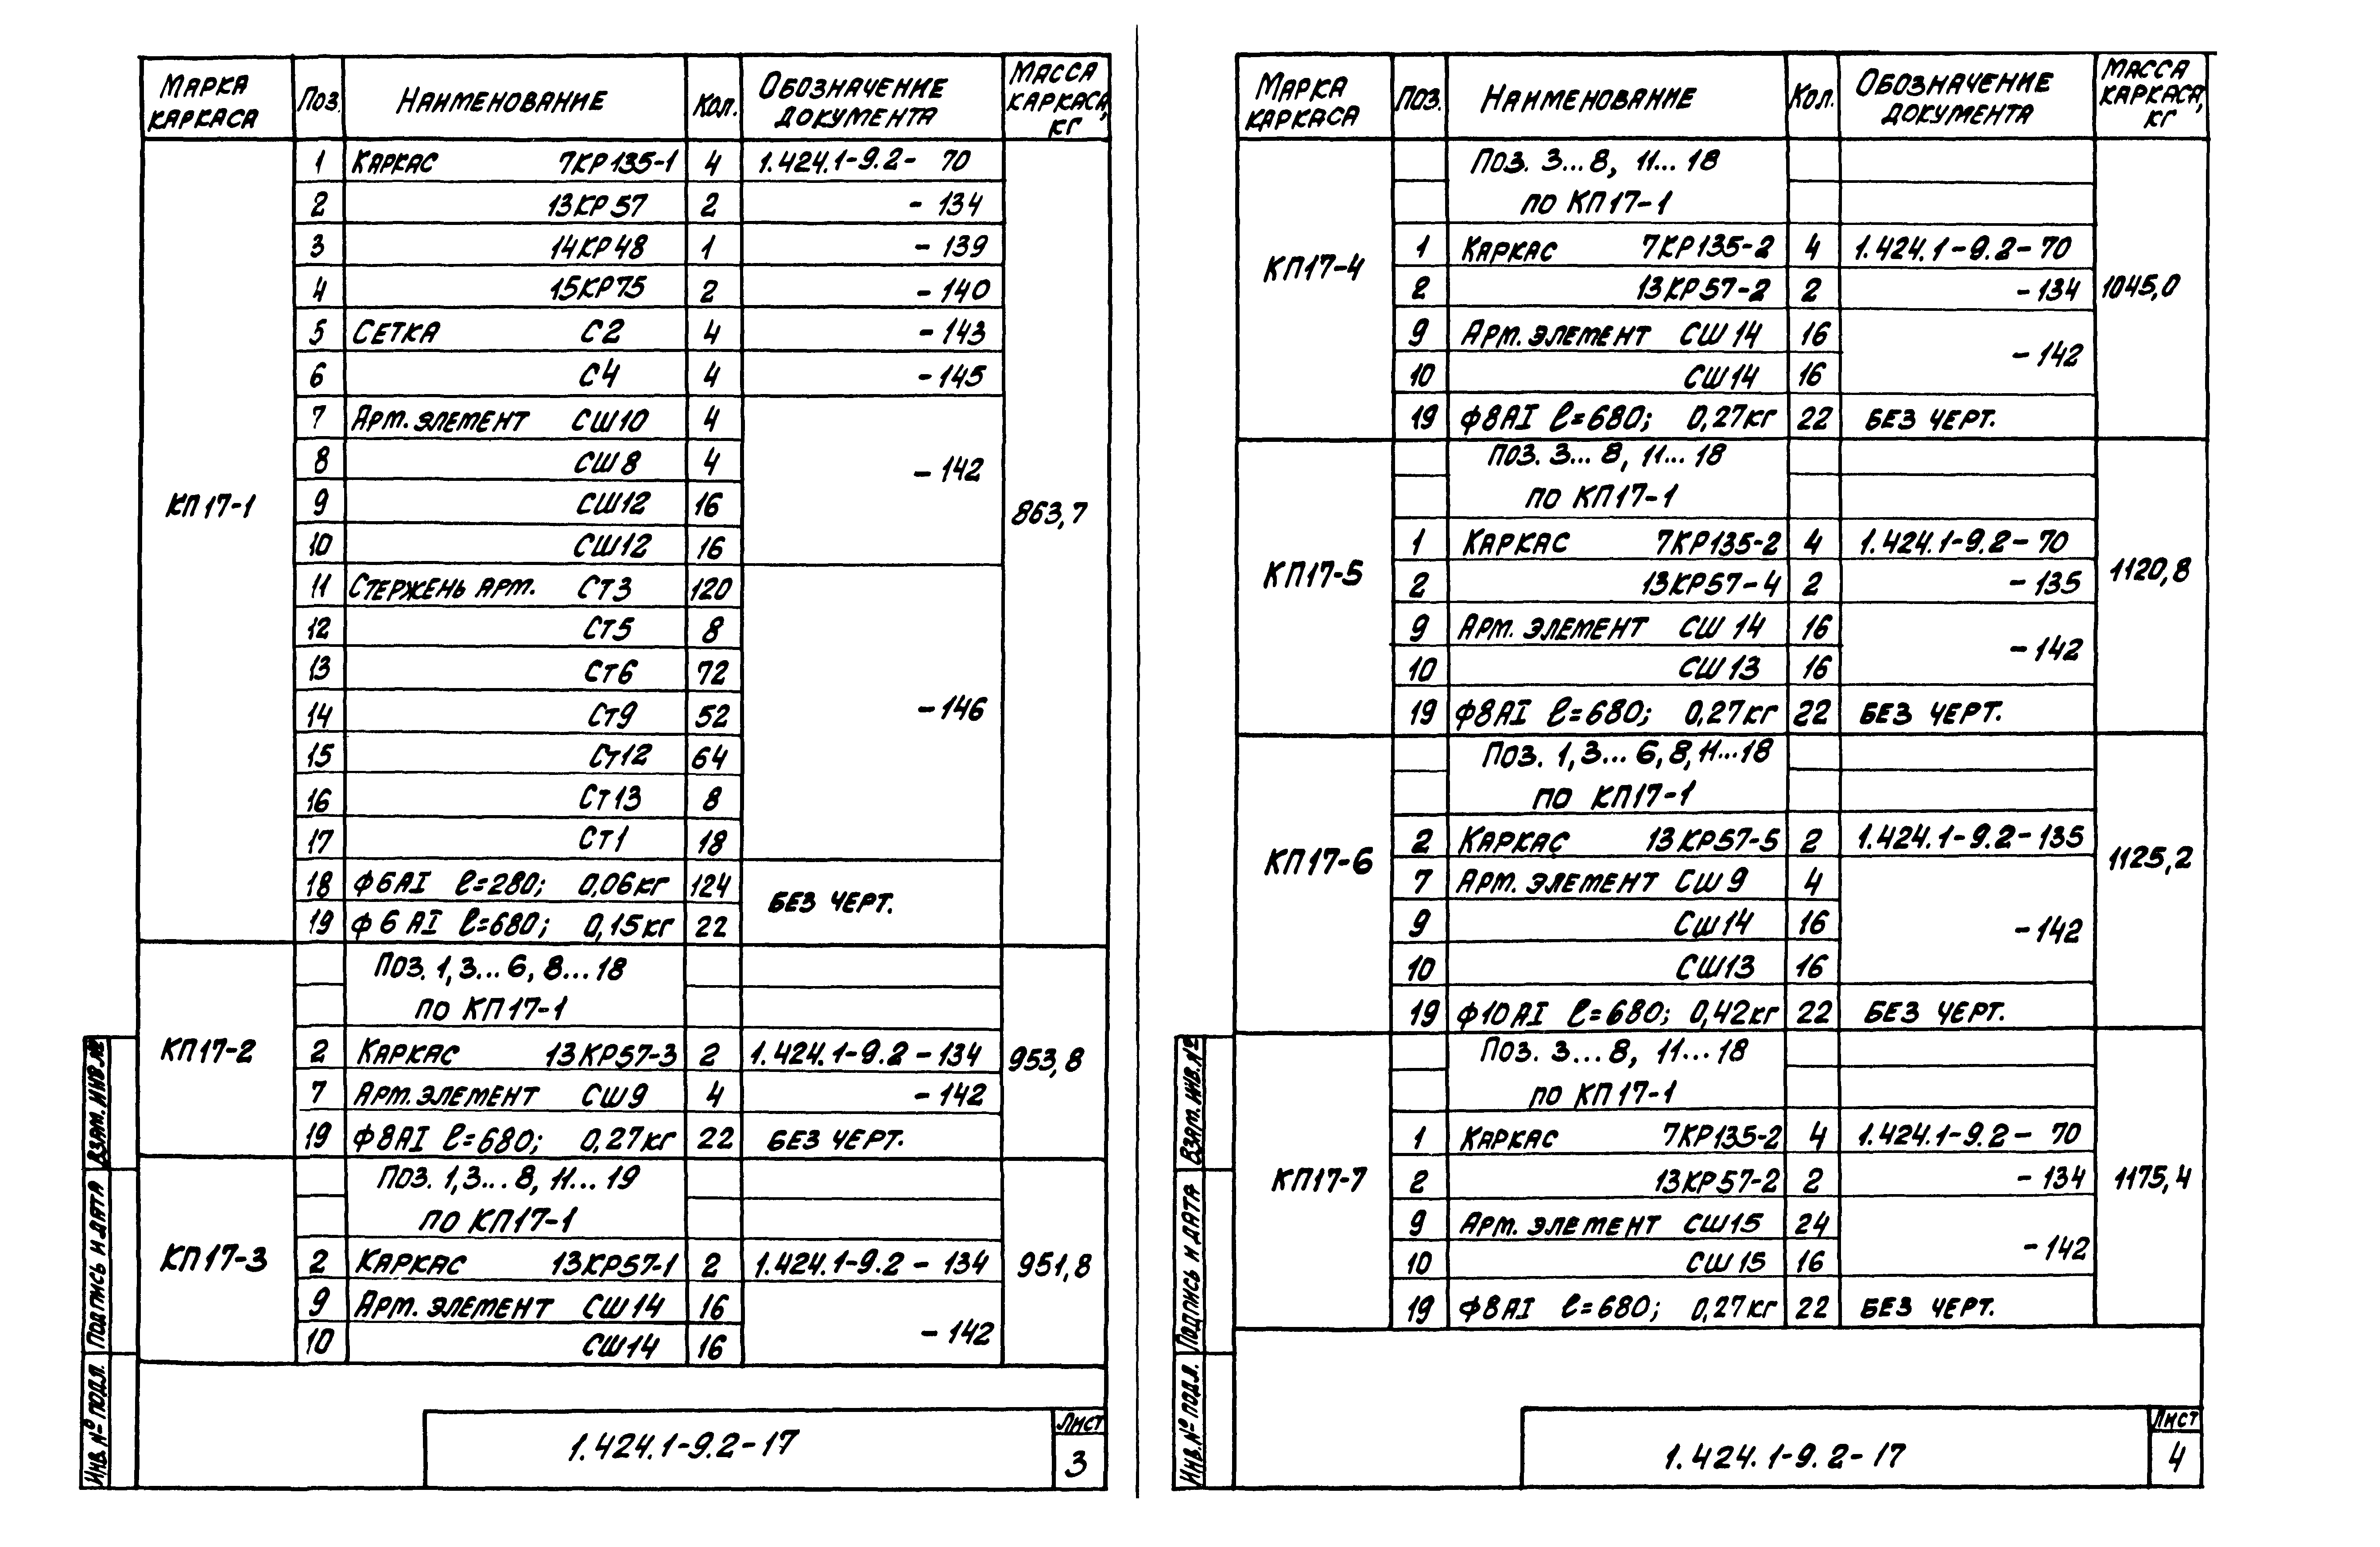 Марка каркаса | Поз. | Наименование | Кол. | Обозначение документа | Масса каркаса, кг
КП17-1 | 863,7
1 | Каркас 7КР135-1 | 4 | 1.424.1-9.2- 70
2 | 13КР57 | 2 | - 134
3 | 14КР48 | 1 | - 139
4 | 15КР75 | 2 | - 140
5 | Сетка С2 | 4 | - 143
6 | С4 | 4 | - 145
7 | Арм. элемент СШ10 | 4 | - 142
8 | СШ8 | 4
9 | СШ12 | 16
10 | СШ12 | 16
11 | Стержень арм. Ст3 | 120 | - 146
12 | Ст5 | 8
13 | Ст6 | 72
14 | Ст9 | 52
15 | Ст12 | 64
16 | Ст13 | 8
17 | Ст1 | 18
18 | ф6АI ℓ=280; 0,06кг | 124 | без черт.
19 | ф6АI ℓ=680; 0,15кг | 22
КП17-2 | 953,8
Поз. 1,3...6, 8...18
по КП17-1
2 | Каркас 13КР57-3 | 2 | 1.424.1-9.2 - 134
7 | Арм. элемент СШ9 | 4 | - 142
19 | ф8АI ℓ=680; 0,27кг | 22 | без черт.
КП17-3 | 951,8
Поз. 1,3...8, 11...19
по КП17-1
2 | Каркас 13КР57-1 | 2 | 1.424.1-9.2 - 134
9 | Арм. элемент СШ14 | 16 | - 142
10 | СШ14 | 16
Взам. инв. №
Подпись и дата
Инв. № подл.
1.424.1-9.2-17
Лист
3
Марка каркаса | Поз. | Наименование | Кол. | Обозначение документа | Масса каркаса, кг
КП17-4 | 1045,0
Поз. 3...8, 11...18
по КП17-1
1 | Каркас 7КР135-2 | 4 | 1.424.1-9.2-70
2 | 13КР57-2 | 2 | - 134
9 | Арм. элемент СШ14 | 16 | - 142
10 | СШ14 | 16
19 | ф8АI ℓ=680; 0,27кг | 22 | без черт.
КП17-5 | 1120,8
Поз. 3...8, 11...18
по КП17-1
1 | Каркас 7КР135-2 | 4 | 1.424.1-9.2- 70
2 | 13КР57-4 | 2 | - 135
9 | Арм. элемент СШ 14 | 16 | - 142
10 | СШ13 | 16
19 | ф8АI ℓ=680; 0,27кг | 22 | без черт.
КП17-6 | 1125,2
Поз. 1,3...6,8,11...18
по КП17-1
2 | Каркас 13КР57-5 | 2 | 1.424.1-9.2-135
7 | Арм. элемент СШ9 | 4 | - 142
9 | СШ14 | 16
10 | СШ13 | 16
19 | ф10АI ℓ=680; 0,42кг | 22 | без черт.
КП17-7 | 1175,4
Поз. 3...8, 11...18
по КП17-1
1 | Каркас 7КР135-2 | 4 | 1.424.1-9.2- 70
2 | 13КР57-2 | 2 | - 134
9 | Арм. элемент СШ15 | 24 | - 142
10 | СШ15 | 16
19 | ф8АI ℓ=680; 0,27кг | 22 | без черт.
Взам. инв. №
Подпись и дата
Инв. № подл.
1.424.1-9.2-17
Лист
4